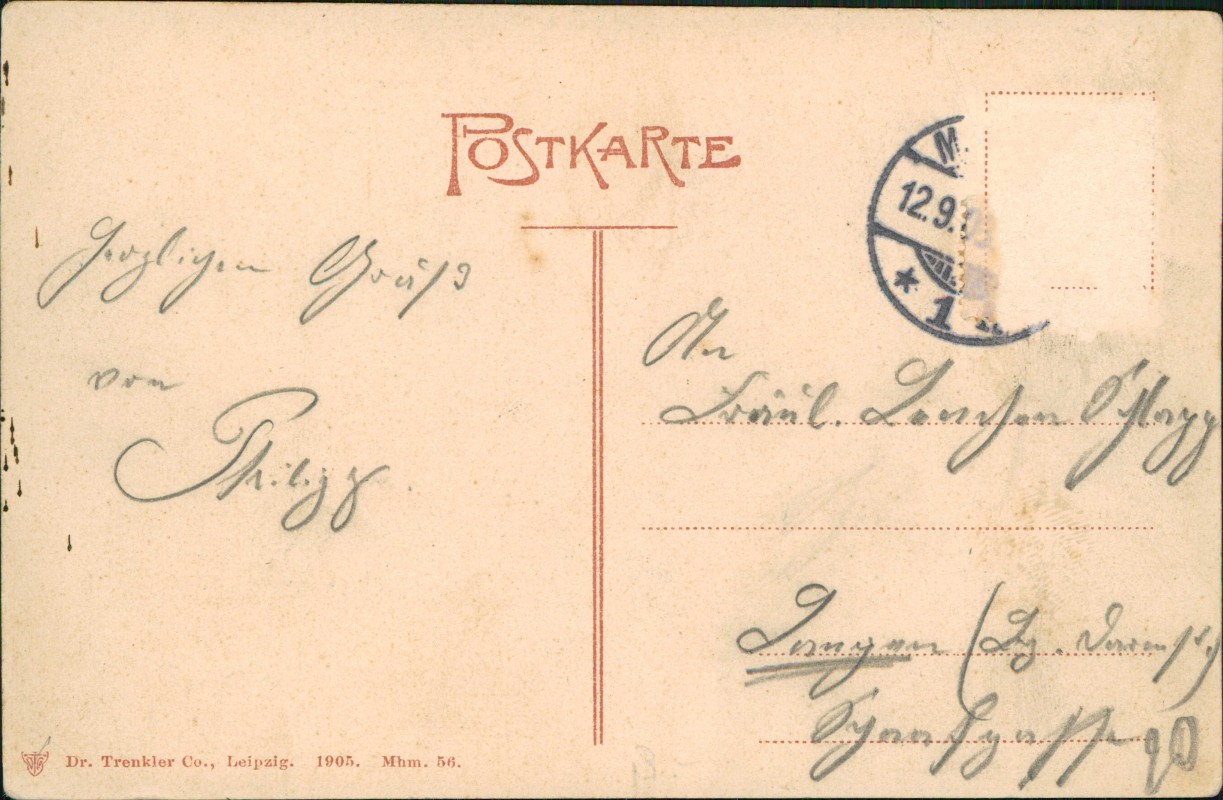 POSTKARTE
M.
12.9.
* 1
Herzlichen Gruß
von
Philipp
An
Fräul. Lenchen Schlapp
Langen (Bz. Darmst.)
Dr. Trenkler Co., Leipzig. 1905. Mhm. 56.